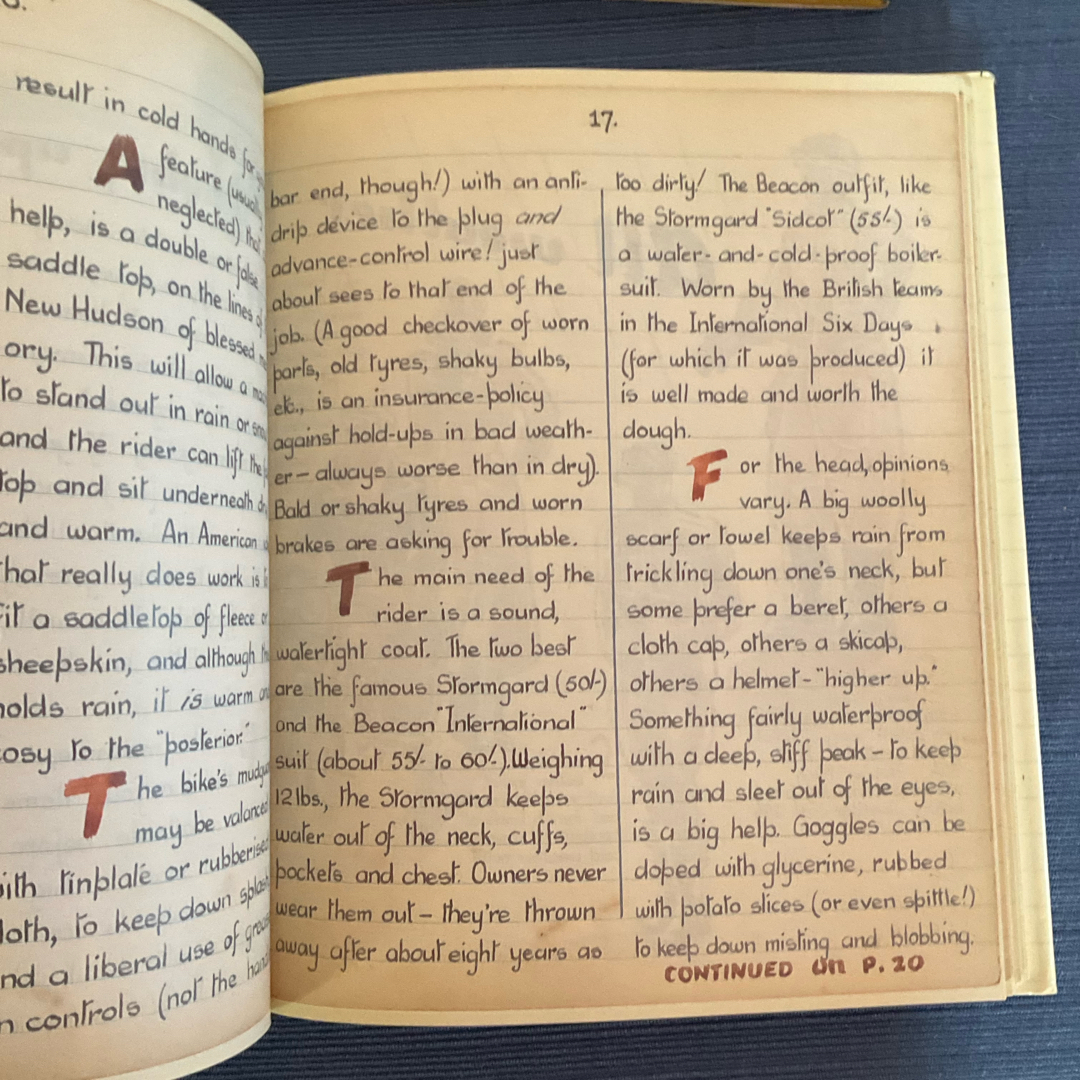 result in cold hands for
A feature (usually
neglected) that
help, is a double or false
saddle top, on the lines of
New Hudson of blessed
ory. This will allow a
to stand out in rain or snow
and the rider can lift the
top and sit underneath dry
and warm. An American
that really does work is to
fit a saddletop of fleece or
sheepskin, and although
holds rain, it is warm and
cosy to the "posterior."
The bike's mudgu
may be valanced
with tinplate or rubberised
cloth, to keep down splash
and a liberal use of grease
n controls (not the hand
17.
bar end, though!) with an anti-
drip device to the plug and
advance-control wire! just
about sees to that end of the
job. (A good checkover of worn
parts, old tyres, shaky bulbs,
etc., is an insurance-policy
against hold-ups in bad weath-
er — always worse than in dry).
Bald or shaky tyres and worn
brakes are asking for trouble.
The main need of the
rider is a sound,
watertight coat. The two best
are the famous Stormgard (50/-)
and the Beacon "International"
suit (about 55/- to 60/-). Weighing
12 lbs., the Stormgard keeps
water out of the neck, cuffs,
pockets and chest. Owners never
wear them out — they're thrown
away after about eight years as
too dirty! The Beacon outfit, like
the Stormgard "Sidcot" (55/-) is
a water-and-cold-proof boiler-
suit. Worn by the British teams
in the International Six Days
(for which it was produced) it
is well made and worth the
dough.
For the head, opinions
vary. A big woolly
scarf or towel keeps rain from
trickling down one's neck, but
some prefer a beret, others a
cloth cap, others a skicap,
others a helmet - "higher up."
Something fairly waterproof
with a deep, stiff peak - to keep
rain and sleet out of the eyes,
is a big help. Goggles can be
doped with glycerine, rubbed
with potato slices (or even spittle!)
to keep down misting and blobbing.
CONTINUED On P. 20